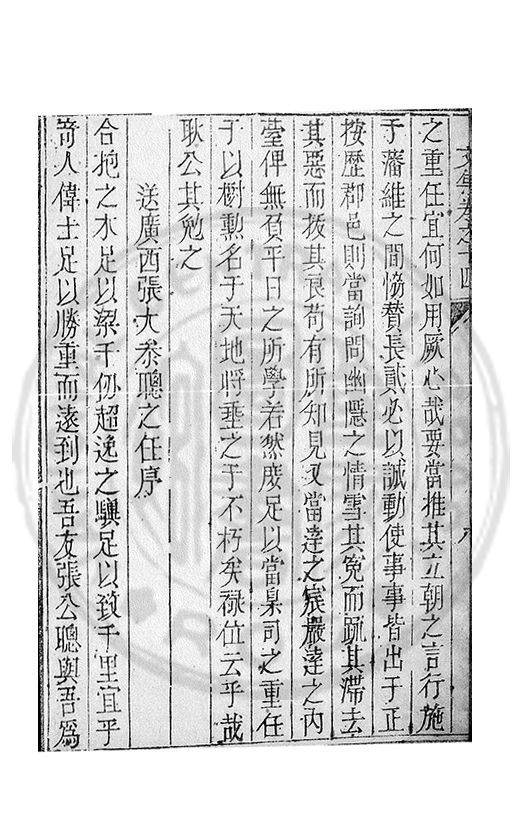 文集卷之十四
八
之重任宜何如用厥心哉要當推其立朝之言行施
于藩維之間恊賛長貳必以誠動使事事皆出于正
按歴郡邑則當詢問幽隱之情雪其寃而䟽其滯去
其惡而扳其良苟有所知見又當達之宸嚴達之内
臺俾無負平日之所學若然庻足以當臬司之重任
于以樹勲名于天地將垂之于不朽矣禄位云乎哉
耿公其勉之
送廣西張大叅聰之任序
合抱之木足以梁千仭超逸之驥足以致千里宜乎
竒人偉士足以勝重而遠到也吾友張公聰與吾爲